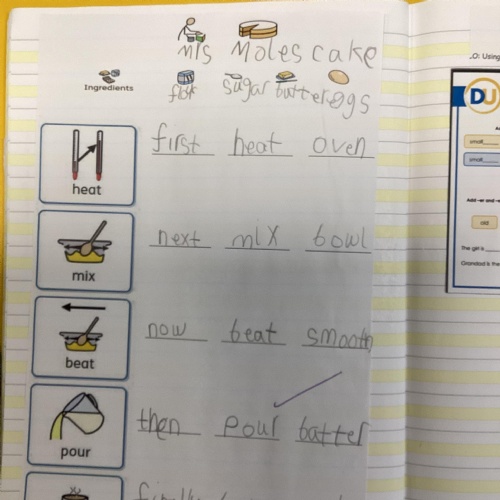 mrs Moles cake
Ingredients
sugar butter eggs
heat
first heat oven
mix
next mix bowl
beat
now beat smooth
pour
then pour batter
.O: Using
DU
small
small
Add -er and -
old
The girl is
Grandad is the